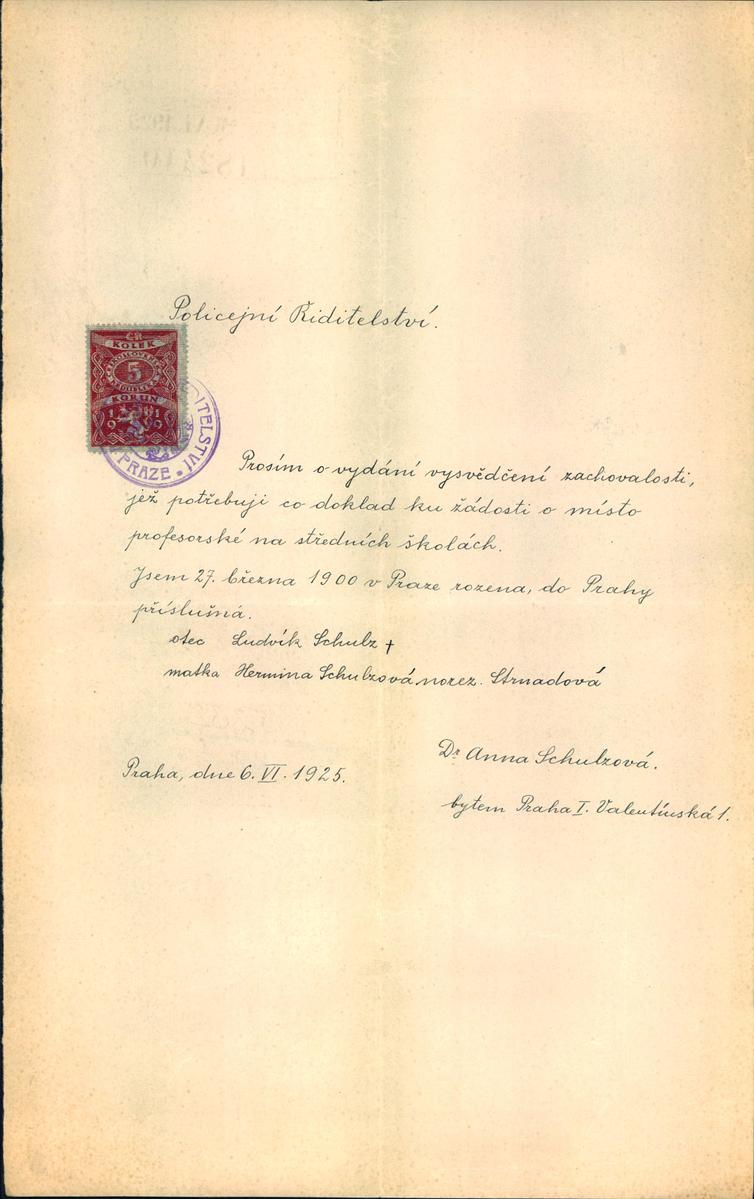 Policejní Řiditelství.
ČSR
KOLEK
5
KORUN
1919
ŘEDITELSTVÍ
PRAZE
Prosím o vydání vysvědčení zachovalosti,
jež potřebuji co doklad ku žádosti o místo
profesorské na středních školách.
Jsem 27. března 1900 v Praze rozena, do Prahy
příslušná.
otec Ludvík Schulz +
matka Hermina Schulzová, norez. Strnadová
Praha, dne 6. VI. 1925.
Dr Anna Schulzová.
bytem Praha I. Valentinská 1.